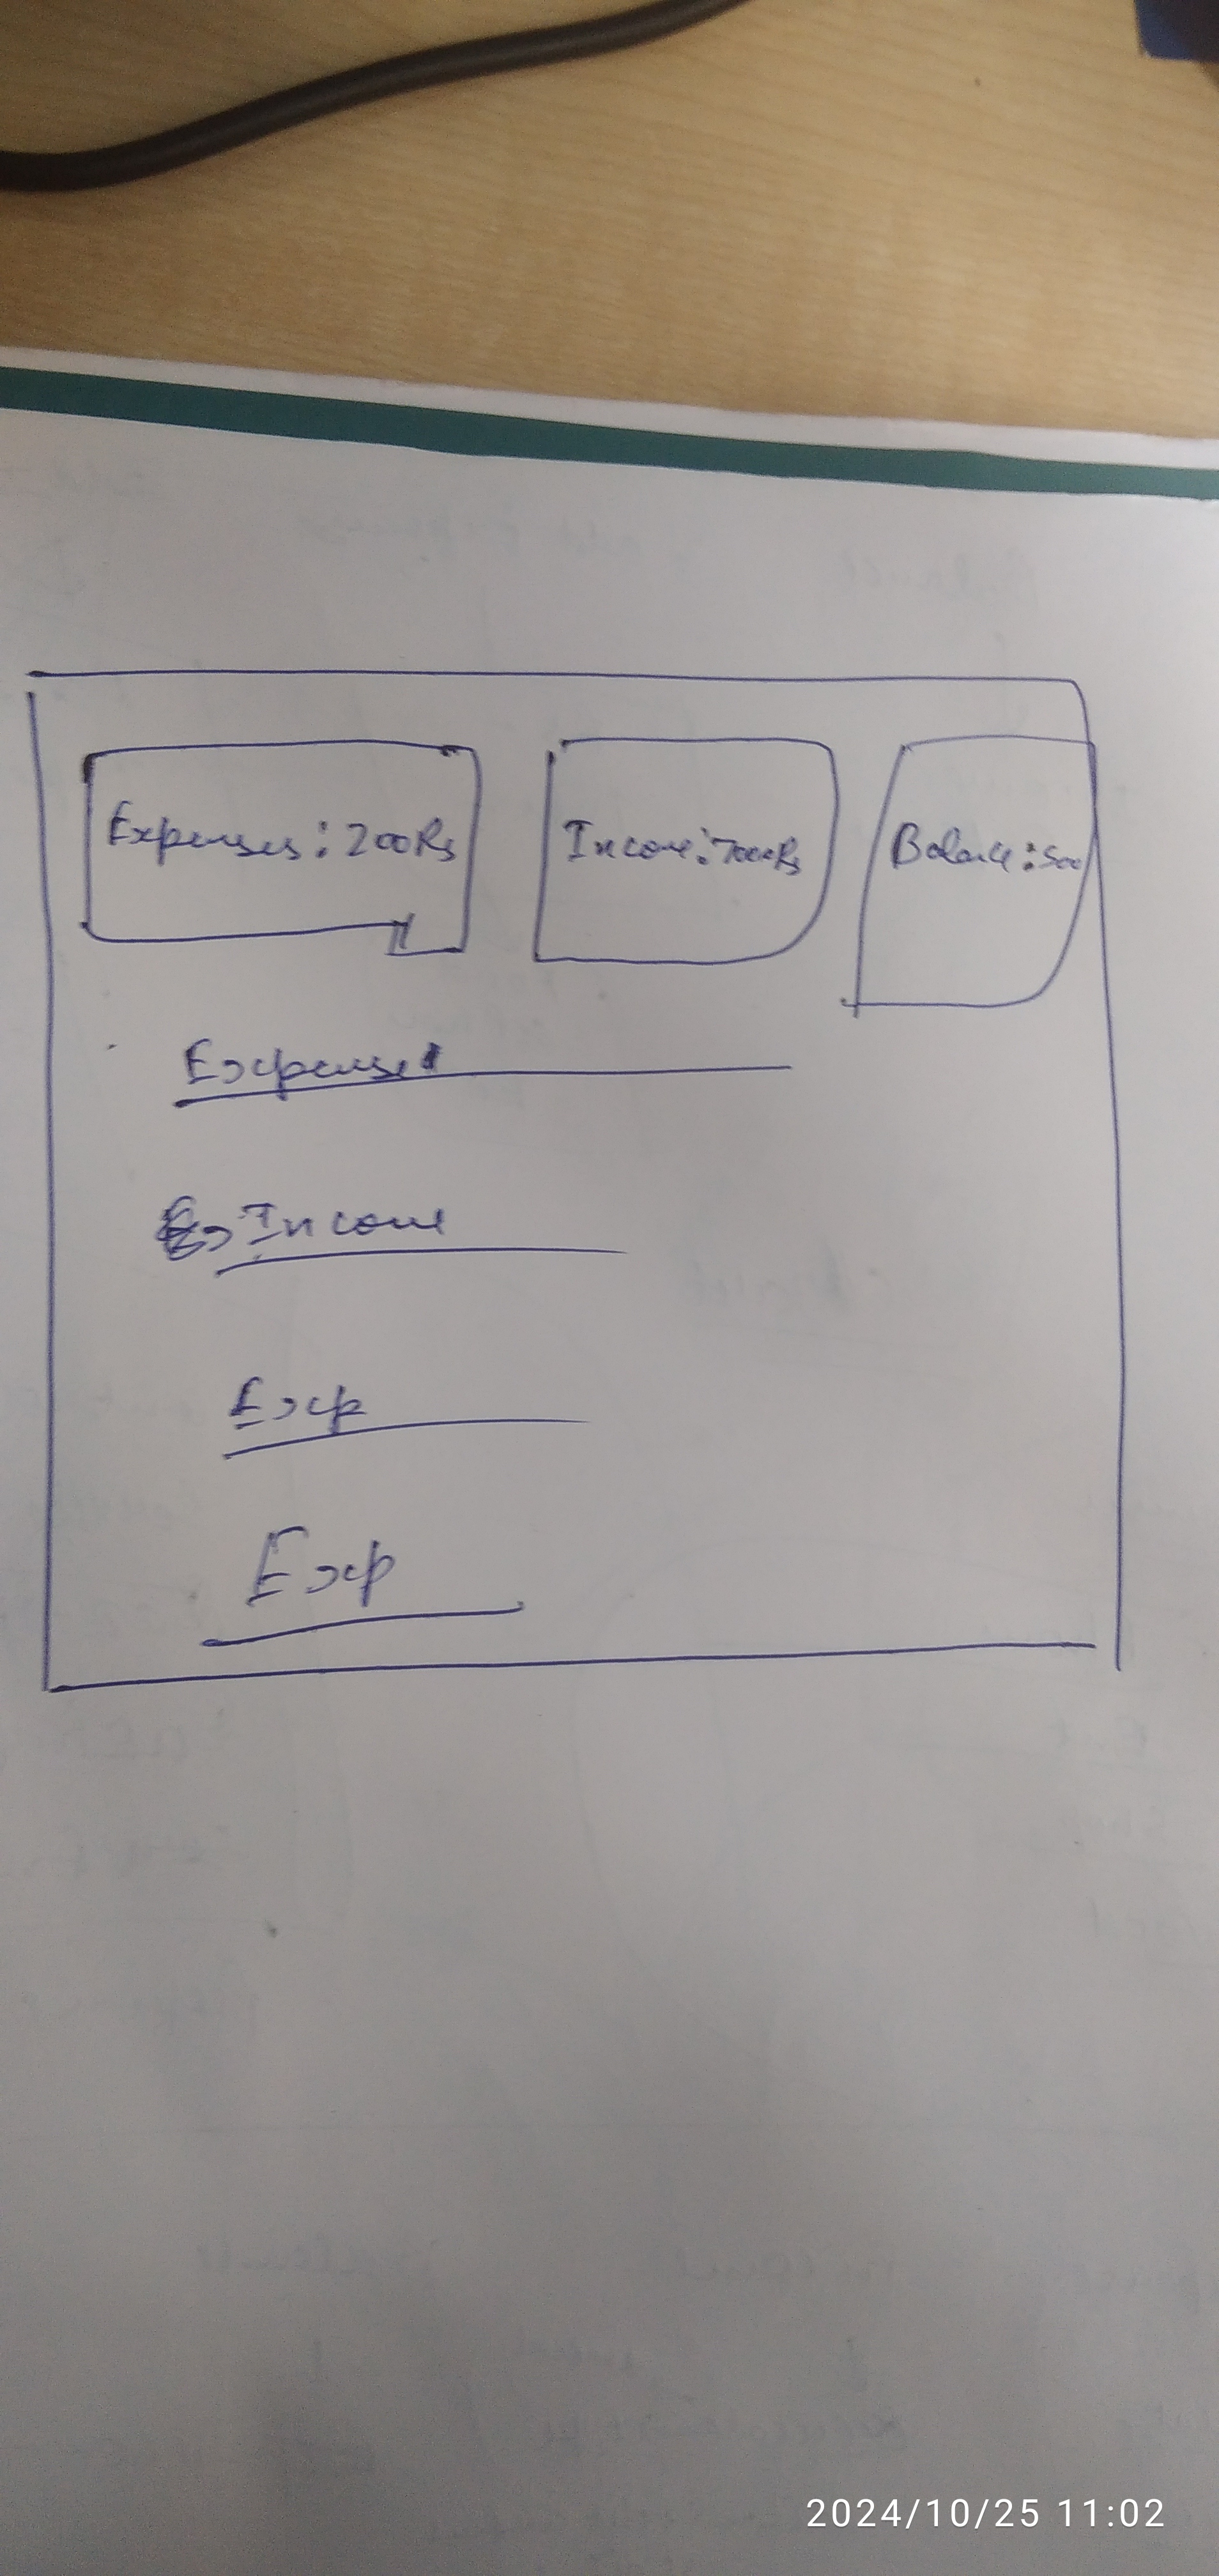 Expenses: 200Rs
Income: 7000Rs
Balance: 500
Expenses
Income
Exp
Exp
2024/10/25 11:02